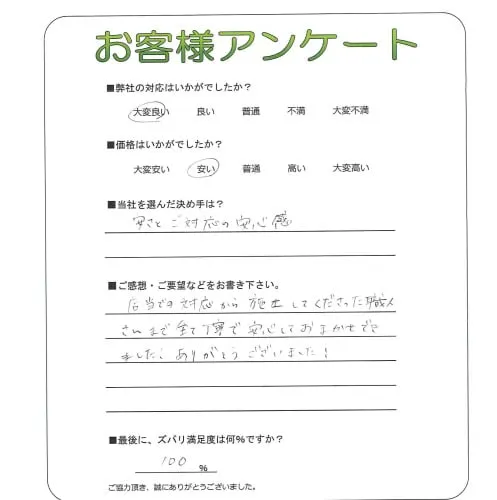 お客様アンケート
■弊社の対応はいかがでしたか？
大変良い 良い 普通 不満 大変不満
■価格はいかがでしたか？
大変安い 安い 普通 高い 大変高い
■当社を選んだ決め手は？
安さとご対応の安心感
■ご感想・ご要望などをお書き下さい。
担当での対応から施工してくださった職人
さんまで全て丁寧で安心しておまかせでき
ました！ありがとうございました！
■最後に、ズバリ満足度は何%ですか？
100 %
ご協力頂き、誠にありがとうございました。